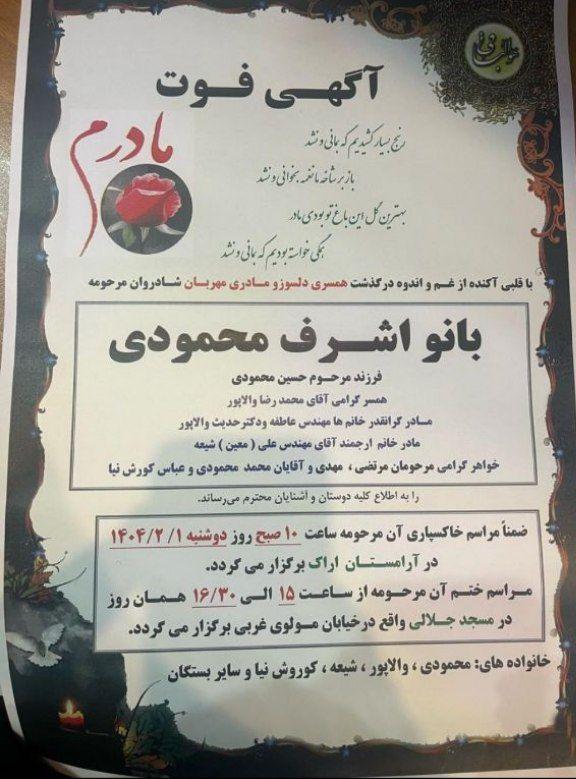 هوالباقی
آگهی فوت
مادرم
رنج بسیار کشیدیم که بمانی و نشد
باز بر شاخه ما نغمه بخوانی و نشد
بهترین گل این باغ تو بودی مادر
همگی خواسته بودیم که بمانی و نشد
با قلبی آکنده از غم و اندوه درگذشت همسری دلسوز و مادری مهربان شادروان مرحومه
بانو اشرف محمودی
فرزند مرحوم حسین محمودی
همسر گرامی آقای محمد رضا والاپور
مادر گرانقدر خانم ها مهندس عاطفه ودکترحدیث والاپور
مادر خانم ارجمند آقای مهندس علی ( معین ) شیعه
خواهر گرامی مرحومان مرتضی ، مهدی و آقایان محمد محمودی و عباس کورش نیا
را به اطلاع کلیه دوستان و آشنایان محترم می‌رساند.
ضمناً مراسم خاکسپاری آن مرحومه ساعت ۱۰ صبح روز دوشنبه ۱/ ۱۴۰۴/۲
در آرامستان اراک برگزار می گردد.
مراسم ختم آن مرحومه از ساعت ۱۵ الی ۱۶/۳۰ همان روز
در مسجد جلالی واقع درخیابان مولوی غربی برگزار می گردد.
خانواده های: محمودی ، والاپور ، شیعه ، کوروش نیا و سایر بستگان